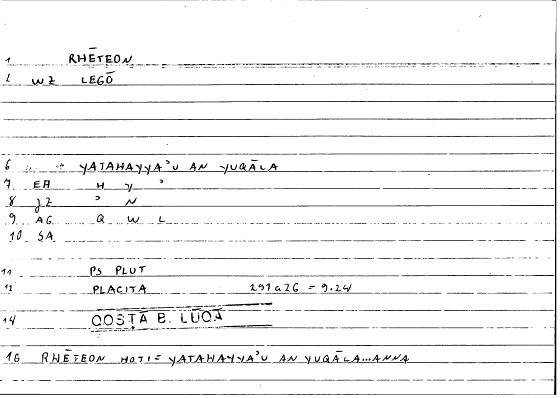 1 RHĒTEON
2 WZ LEGŌ
6 → YATAHAYYA'U AN YUQĀLA
7 EA H Y '
8 JZ ' N
9 AG Q W L
10 SA
11 PS PLUT
12 PLACITA 291a26 = 9.24
14 QOSṬĀ B. LŪQĀ
16 RHĒTEON HOTI = YATAHAYYA'U AN YUQĀLA...ANNA